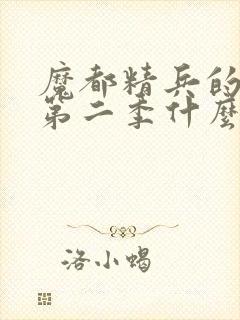 魔都精兵的
第二季什麼
洛小蝎